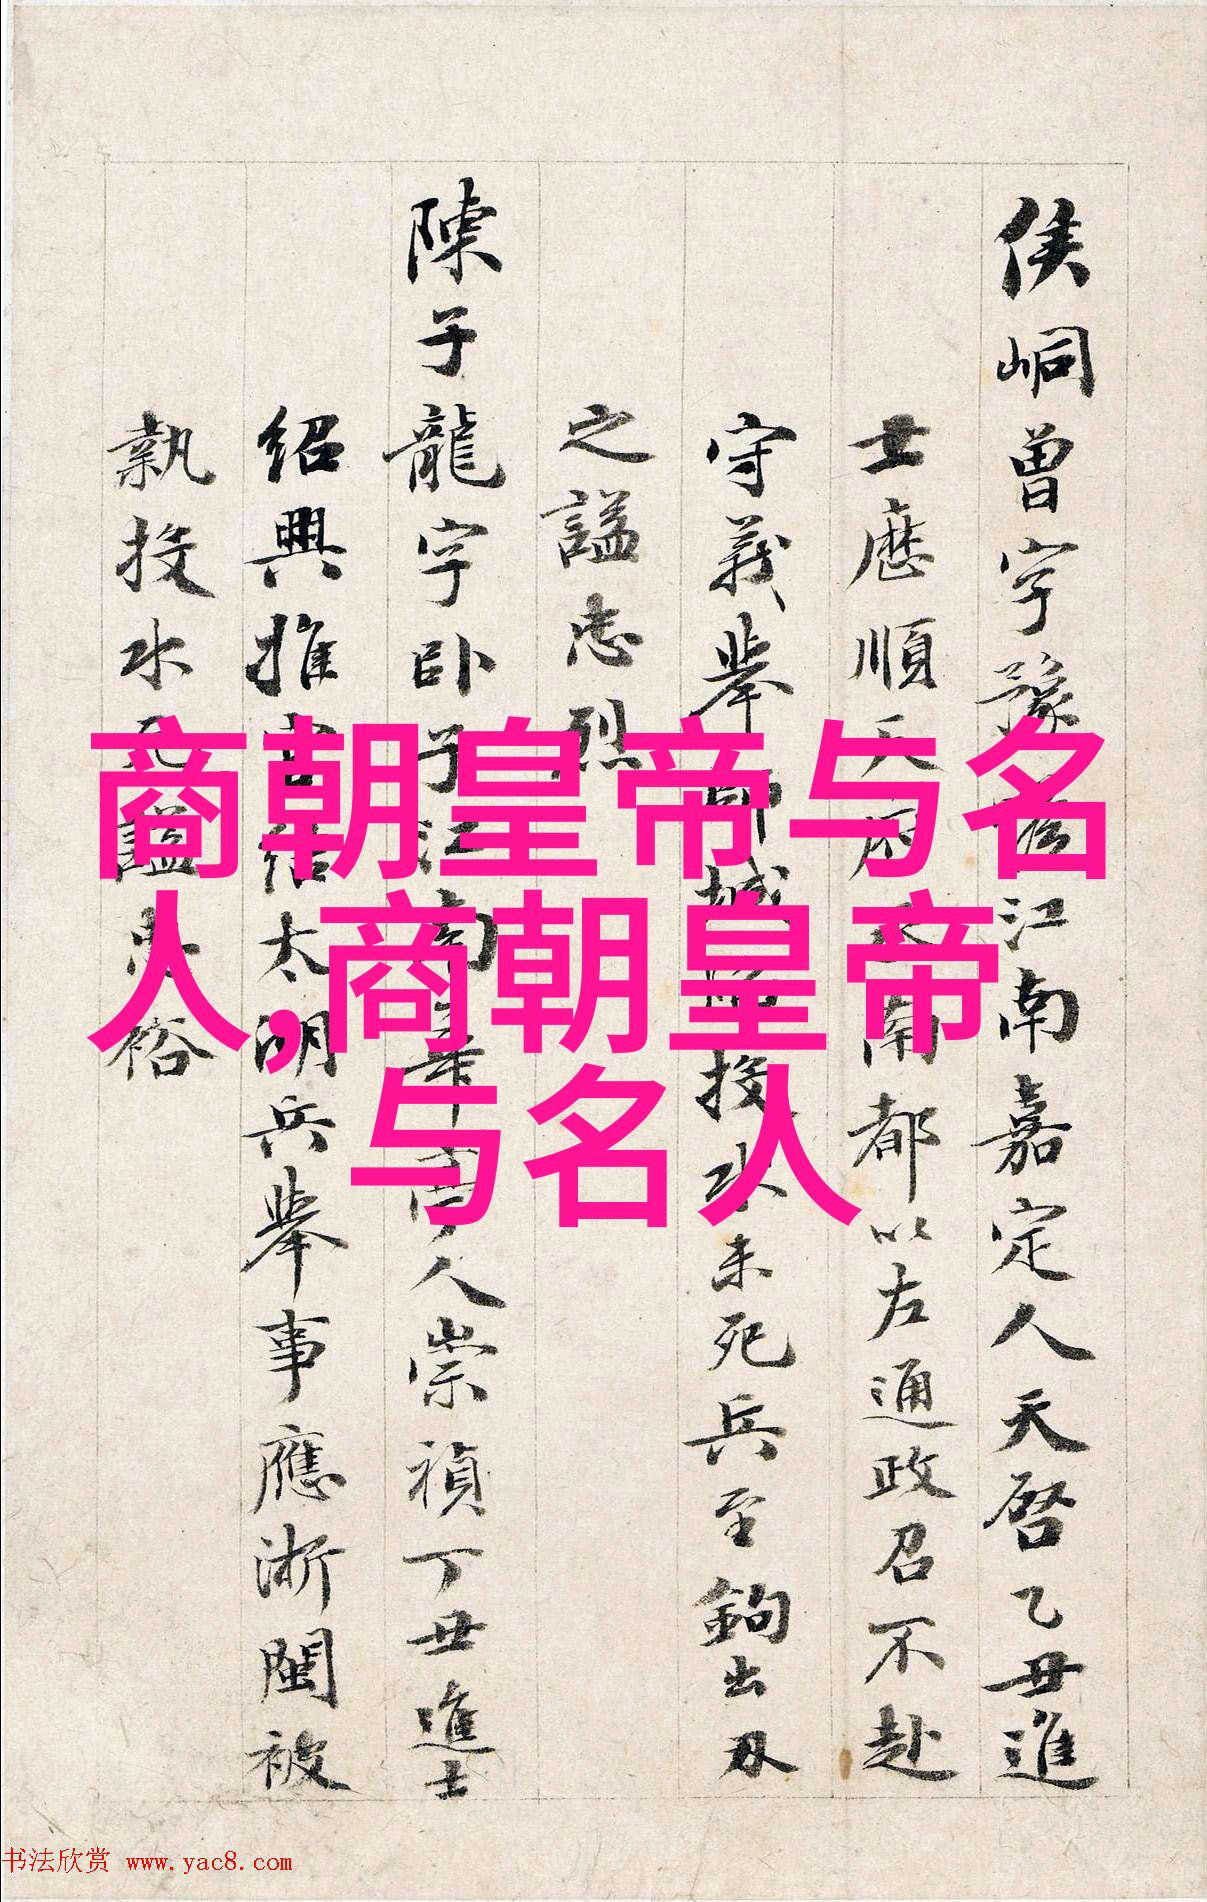 侯峒曾字豫江南嘉定人天啓乙丑進
士歷順天南都以左通政召不赴
守義舉城投水未死兵至鉤出刃
之謚忠烈
陳子龍字卧子江南人崇禎丁丑進士
紹興推官結太湖兵舉事應浙閩被
執投水死謚裕
商朝皇帝与名
人,商朝皇帝
与名人
书法欣赏 www.yac8.com